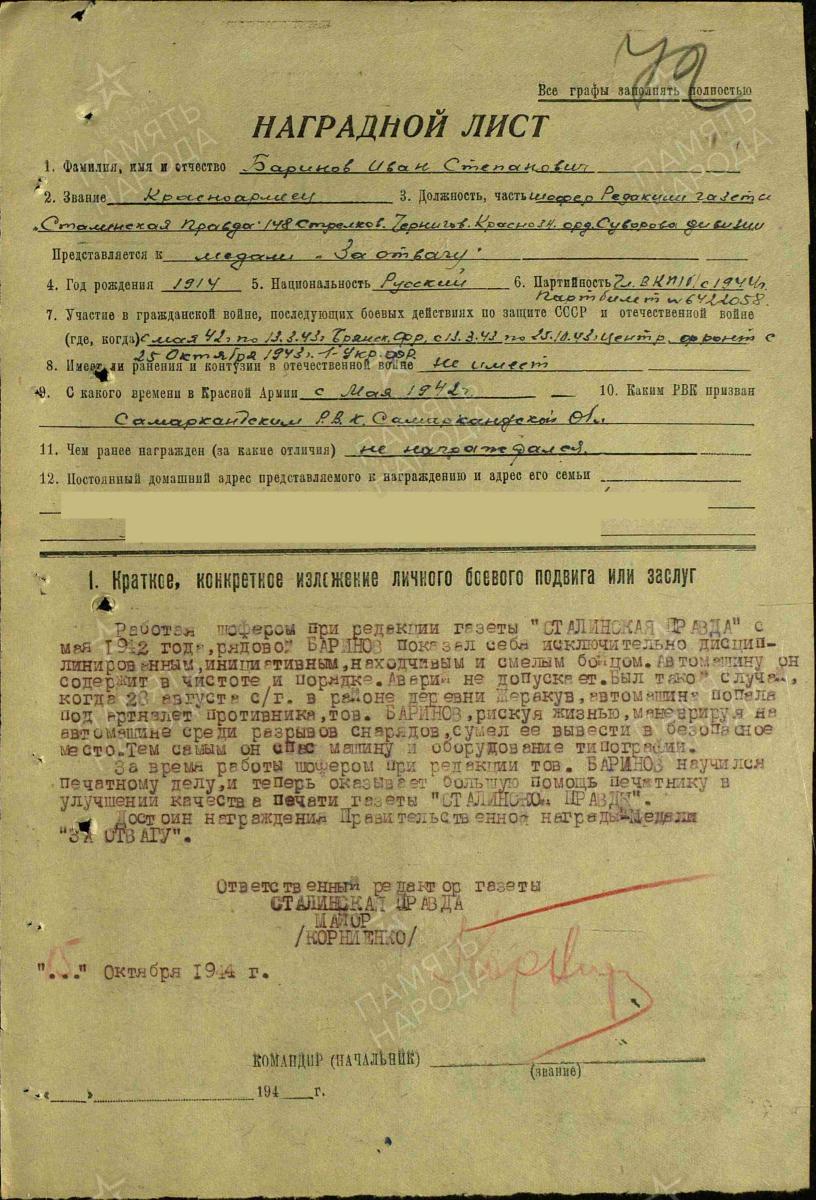 72
Все графы заполнять полностью
НАГРАДНОЙ ЛИСТ
1. Фамилия, имя и отчество Баринов Иван Степанович
2. Звание Красноармеец 3. Должность, часть шофер Редакции газеты
"Сталинская Правда" 148 стрелков. Чернигов. Красноз н. орд. Суворова дивизии
Представляется к медали "За отвагу"
4. Год рождения 1914 5. Национальность Русский 6. Партийность Чл. ВКП/б/ с 1944 г.
Партбилет № 6422058.
7. Участие в гражданской войне, последующих боевых действиях по защите СССР и отечественной войне
(где, когда) с мая 42 г. по 13.3.43 г. Брянск. Фр., с 13.3.43 по 25.10.43 г. Центр. фронт с
25 Октября 1943 г. 1-Укр. фр.
8. Имеет ли ранения и контузии в отечественной войне не имеет
9. С какого времени в Красной Армии с Мая 1942 г. 10. Каким РВК призван
Самаркандским Р.В.К. Самаркандской Обл.
11. Чем ранее награжден (за какие отличия) не награждался.
12. Постоянный домашний адрес представляемого к награждению и адрес его семьи
I. Краткое, конкретное изложение личного боевого подвига или заслуг
Работая шофером при редакции газеты "СТАЛИНСКАЯ ПРАВДА" с
мая 1942 года, рядовой БАРИНОВ показал себя исключительно дисцип-
линированным, инициативным, находчивым и смелым бойцом. Автомашину он
содержит в чистоте и порядке. Аварий не допускает. Был такой случай,
когда 23 августа с/г. в районе деревни Жеракув, автомашина попала
под артналет противника, тов. БАРИНОВ, рискуя жизнью, маневрируя на
автомашине среди разрывов снарядов, сумел ее вывести в безопасное
место. Тем самым он спас машину и оборудование типографии.
За время работы шофером при редакции тов. БАРИНОВ научился
печатному делу, и теперь оказывает большую помощь печатнику в
улучшении качества печати газеты "СТАЛИНСКОЙ ПРАВДЫ".
Достоин награждения Правительственной награды-Медали
"ЗА ОТВАГУ".
Ответственный редактор газеты
СТАЛИНСКАЯ ПРАВДА
МАЙОР
/КОРНИЕНКО/
"15" Октября 1944 г.
КОМАНДИР (НАЧАЛЬНИК)
(звание)
« » 194 г.
ПАМЯТЬ НАРОДА